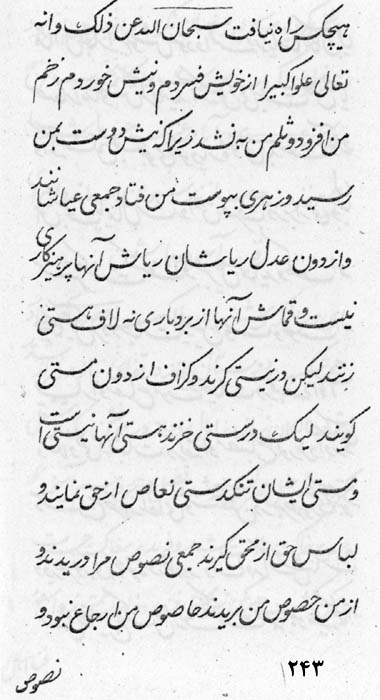 هیچکس راه نیافت سبحان الله عن ذلک وانه
تعالی علوا کبیرا از خویش فسردم و نیش خوردم زخم
من افزود و ثلم من نشد زیرا که نیش دوست بمن
رسید و زهری بپوست من فتاد جمعی عباشانند
و از دون عدل ریاشان ریاش آنها پرهیزکاری
نیست و قماش آنها از بردباری نه لاف هستی
زنند لیکن در نیستی گرند و گزاف از دون مستی
گویند لیک در سستی خزند هستی آنها نیستی است
و مستی ایشان تنگدستی نعاص از حق نمایند و
لباس حق از محق گیرند جمعی نصوص مرا دریدند و
از من خصوص من بریدند حاصوص من ارجاع نبود و
نصوص
۲۴۳